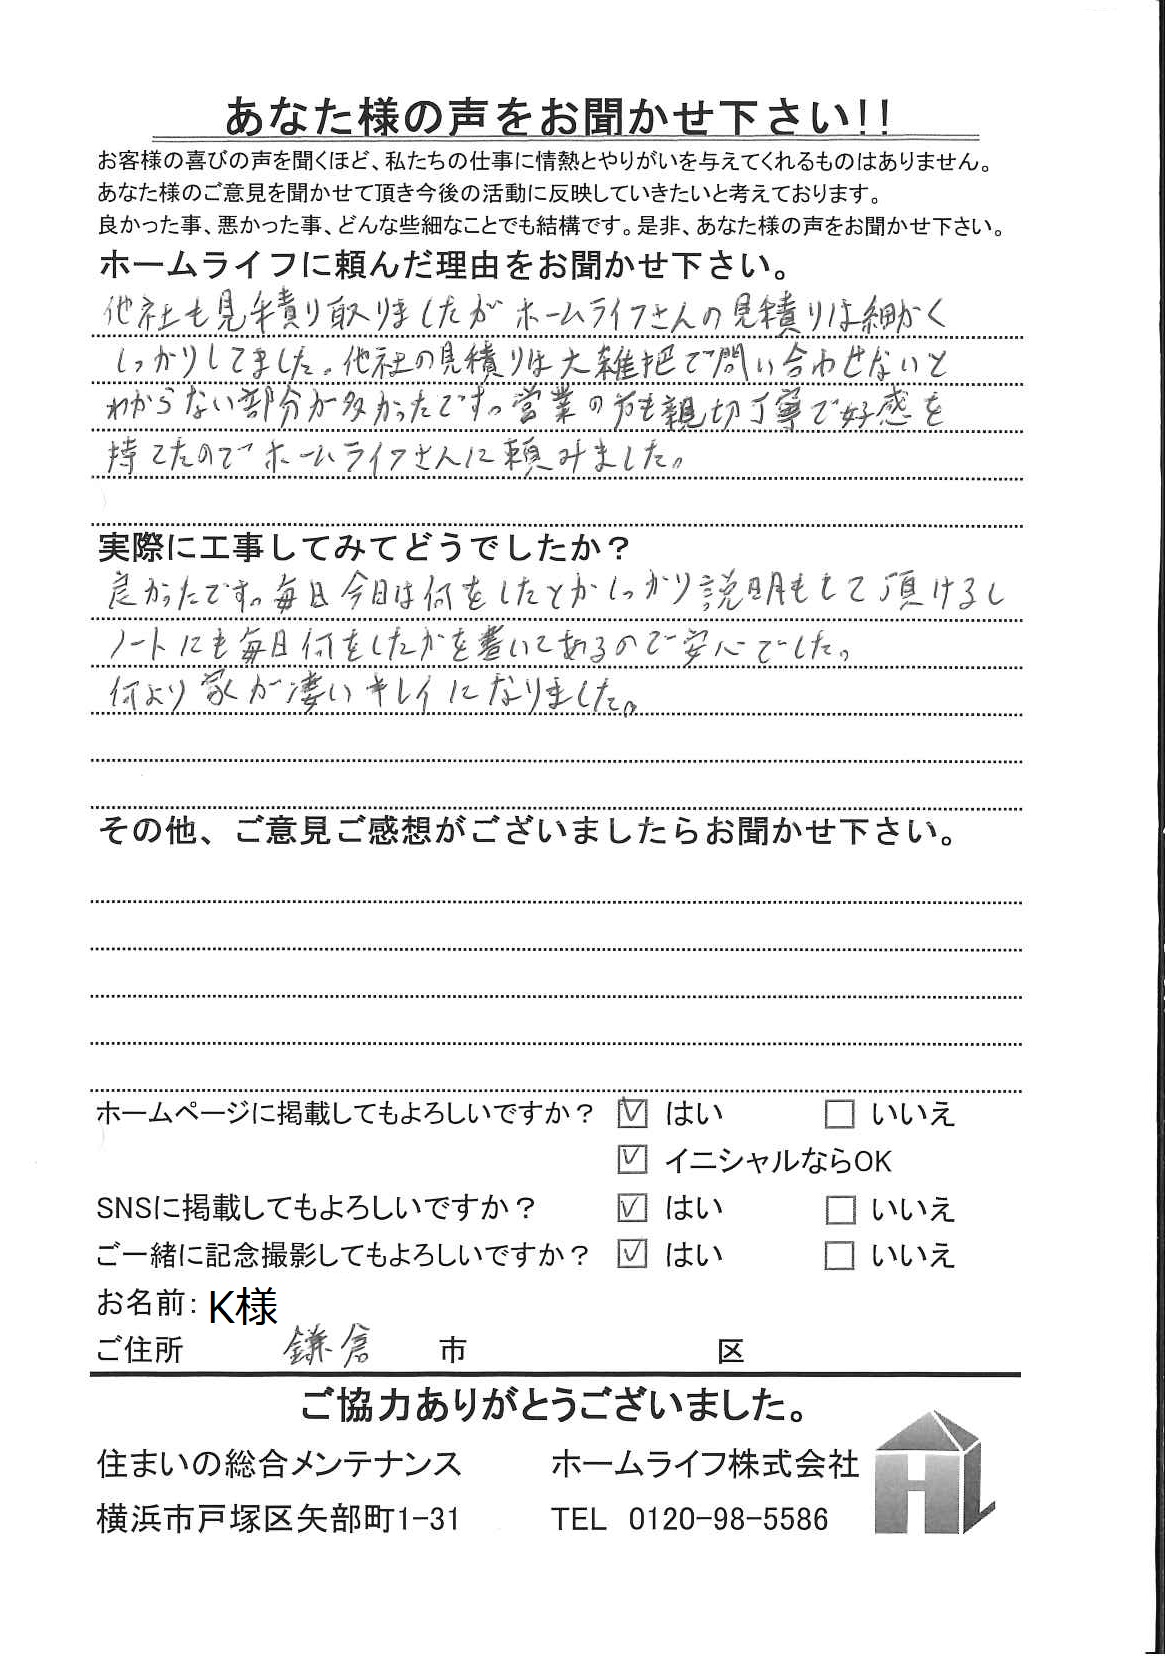 あなた様の声をお聞かせ下さい!!
お客様の喜びの声を聞くほど、私たちの仕事に情熱とやりがいを与えてくれるものはありません。
あなた様のご意見を聞かせて頂き今後の活動に反映していきたいと考えております。
良かった事、悪かった事、どんな些細なことでも結構です。是非、あなた様の声をお聞かせ下さい。
ホームライフに頼んだ理由をお聞かせ下さい。
他社も見積り取りましたがホームライフさんの見積りは細かく
しっかりしてました。他社の見積りは大雑把で問い合わせないと
わからない部分が多かったです。営業の方も親切丁寧で好感を
持てたのでホームライフさんに頼みました。
実際に工事してみてどうでしたか？
良かったです。毎日今日は何をしたとかしっかり説明もして頂けるし
ノートにも毎日何をしたかを書いてあるので安心でした。
何より家が凄いキレイになりました。
その他、ご意見ご感想がございましたらお聞かせ下さい。
ホームページに掲載してもよろしいですか？ ☑ はい □ いいえ
☑ イニシャルならOK
SNSに掲載してもよろしいですか？ ☑ はい □ いいえ
ご一緒に記念撮影してもよろしいですか？ ☑ はい □ いいえ
お名前：K様
ご住所 鎌倉 市 区
ご協力ありがとうございました。
住まいの総合メンテナンス ホームライフ株式会社
横浜市戸塚区矢部町1-31 TEL 0120-98-5586
HL